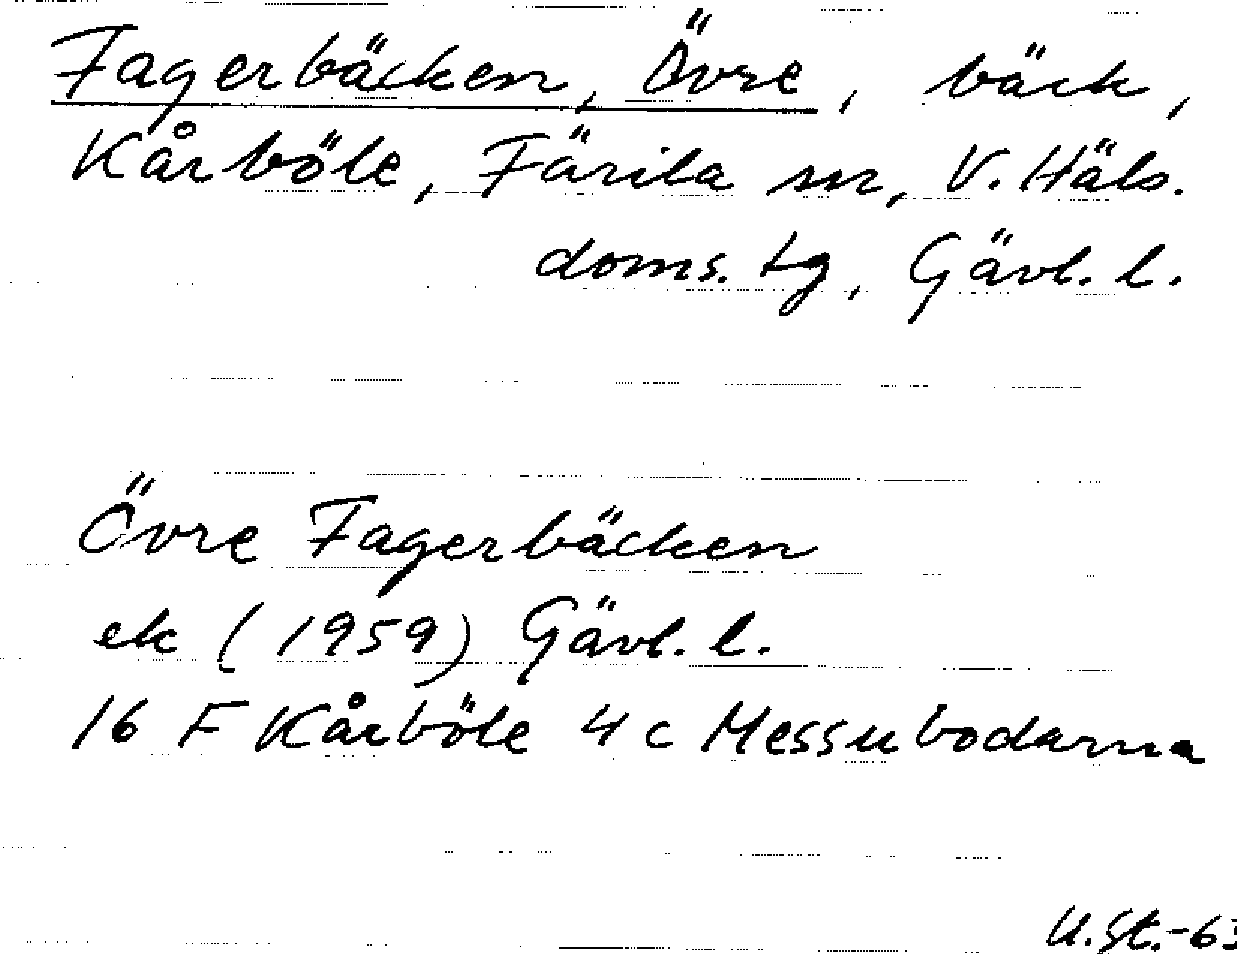 Fagerbäcken, Övre, bäck,
Kårböle, Färila sn, V. Häls.
doms. tg, Gävl. l.
Övre Fagerbäcken
ek (1959) Gävl. l.
16 F Kårböle 4 c Messubodarna
U.St.-63